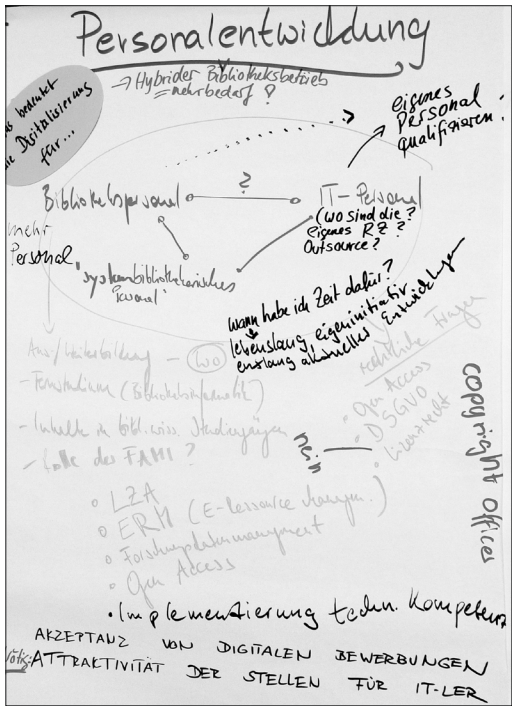 Personalentwicklung
→ Hybrider Bibliotheksbetrieb
= mehrbedarf?
was bedeutet
die Digitalisierung
für...
eigenes
Personal
qualifizieren!
Bibliothekspersonal
?
IT-Personal
(wo sind die?
eigenes RZ?
Outsource?
mehr
Personal
"systembibliothekarisches
Personal"
wann habe ich Zeit dafür?
lebenslang, eigeninitiativ
entlang aktueller Entwicklungen
Aus-/Weiterbildung – (wo)
- Fernstudium (Bibliotheksinformatik)
- Inhalte in bibl.wiss. Studiengängen
- Rolle des FAMI?
rechtliche Fragen
• Open Access
• DSGVO
• Lizenzrecht
nein
copyright Offices
• LZA
• ERM (E-Ressource Managem.)
• Forschungsdatenmanagement
• Open Access
• Implementierung techn. Kompetenz
AKZEPTANZ VON DIGITALEN BEWERBUNGEN
ATTRAKTIVITÄT DER STELLEN FÜR IT-LER